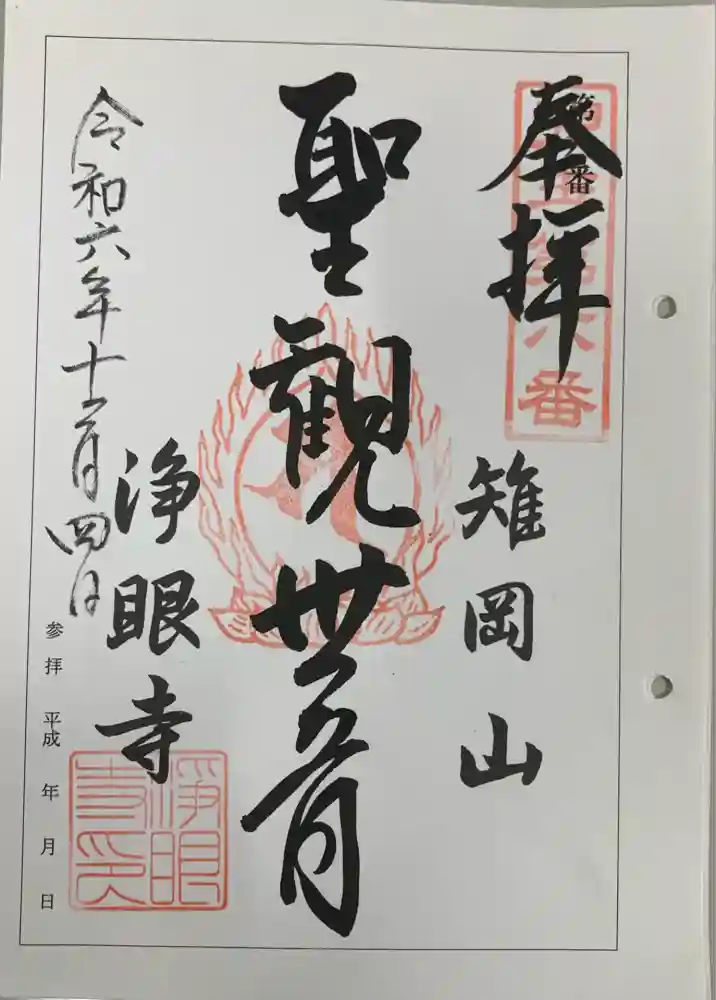 奉拝
第 番
雉岡山
聖観世音
浄眼寺
浄眼
寺印
令和六年十一月四日
参拝 平成 年 月 日